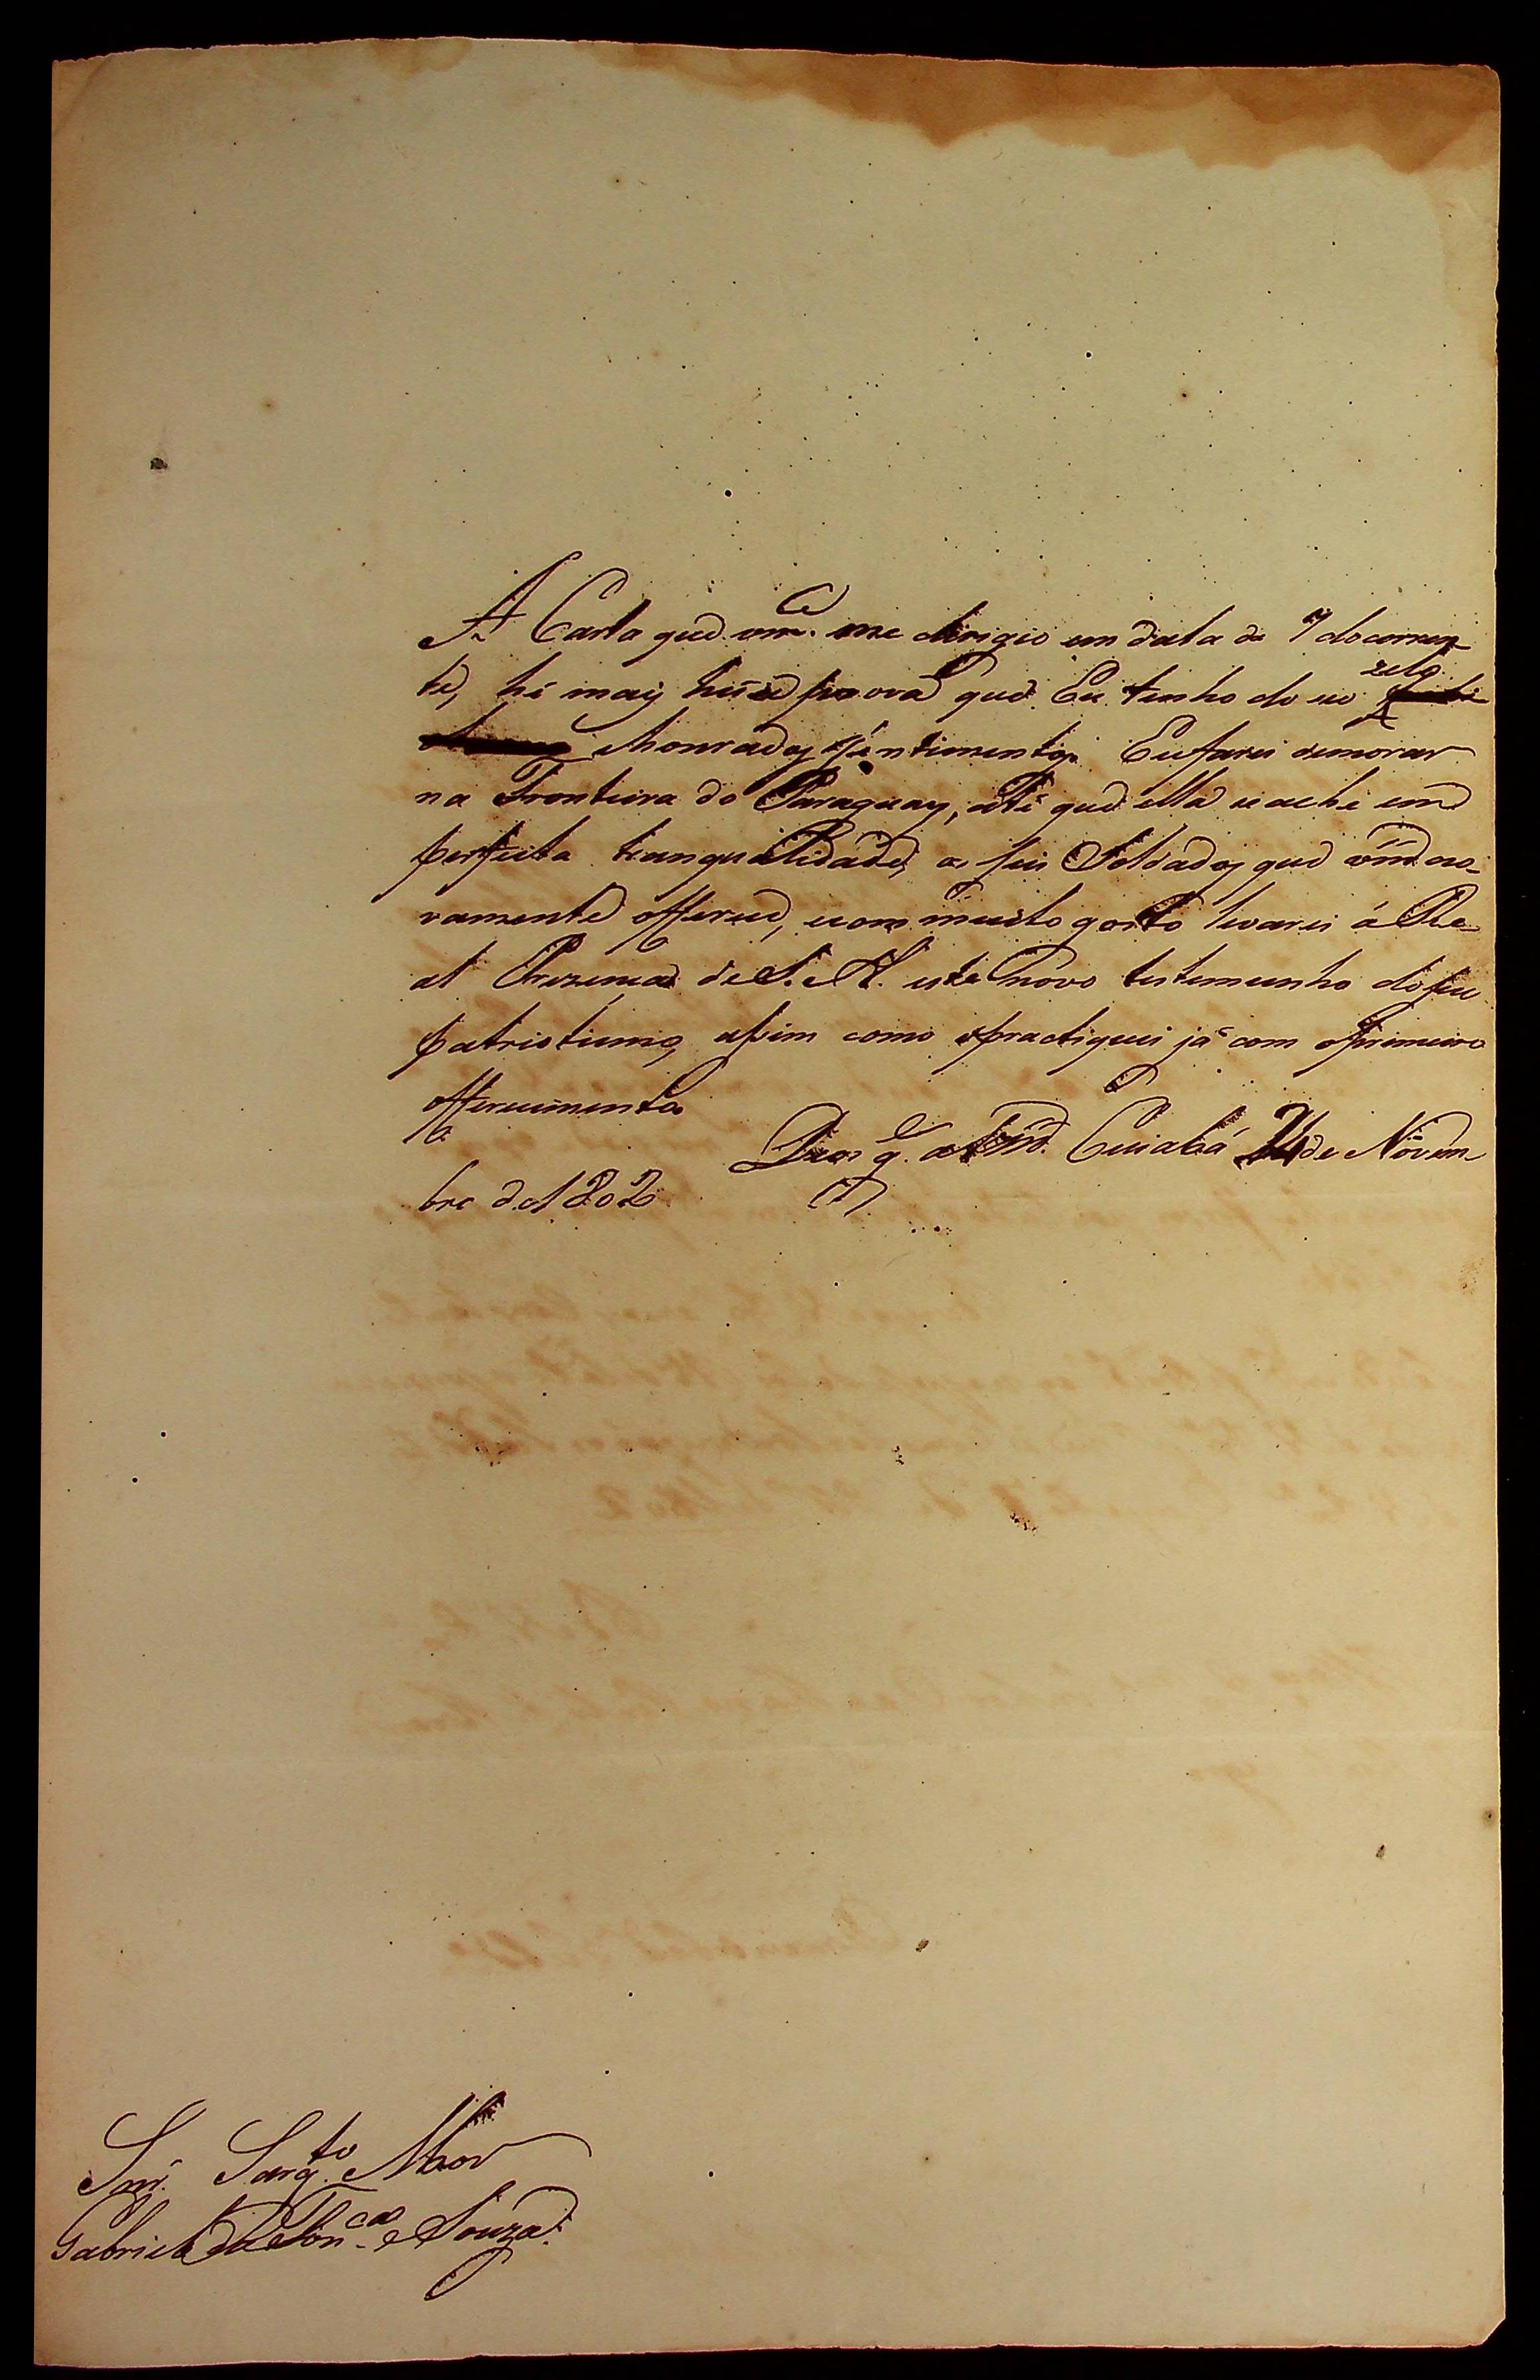 A Carta que vm.ce me dirigio em data de 7 do corren-
te, hé mais huã prova que Eu tenho do seo zelo
e honrados sentimentos. Eu farei demorar
na Fronteira do Paraguay, até que ella se ache em
perfeita tranqualidade, os seis Soldados que vm.ce no-
vamente offerece, e com muito gosto levarei á Re-
al Prezença de S. A. este novo testemunho do seu
patriotismo, assim como o practiquei já com o primeiro
offerecimento.
Deos g.e a vm.ce Cuiabá 24 de Novem-
bro de 1802
Snr. Sarg.to Mor
Gabriel da Fon.ca e Souza.